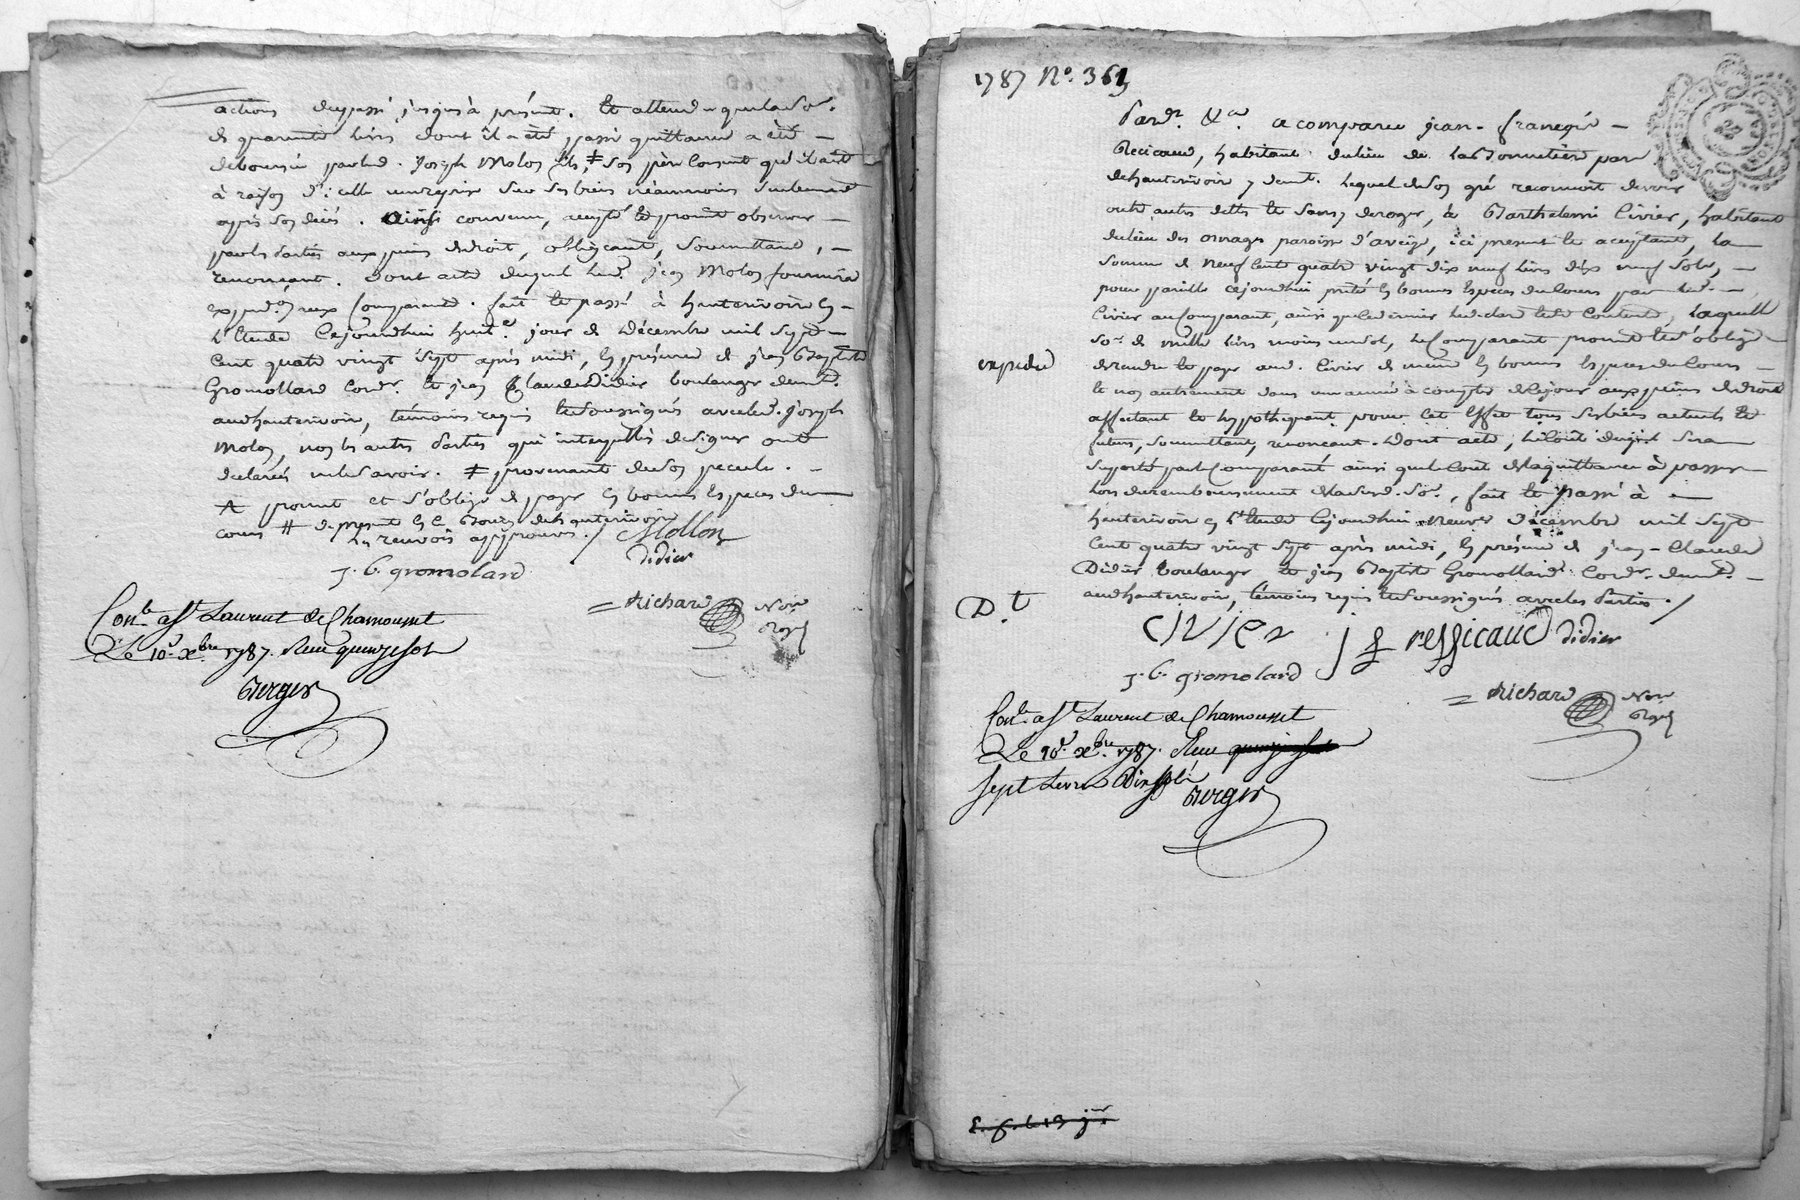 actions du passé jusques à présent. Et attendu que la so.e
de quarante livres dont il a été passé quittance a été
déboursée par led. Joseph Molon fils, ≠ son père consent qu'il ait
à raison d'icelle sur ses biens néanmoins seulement
après son décès. Ainsi convenu, accepté et promis observer
par les parties aux peines de droit, obligeant, soumettant,
renonçant. Dont acte duquel led. Jean Molon fournira
expéd.on aux comparants. fait et passé à hauterivoire en
l'Etude cejourdhui huit.e jour de décembre mil sept
cent quatre vingt sept après midi, en présence de jean Baptiste
Gromollard cord.r et jean Claude Didier boulanger dem.t
aud hauterivoire, témoins requis et soussignés avec led. joseph
Molon, non les autres parties qui interpellées de signer ont
déclarées ne le savoir. ≠ provenant de son pecule.
A promet et s'oblige de payer en bonnes Especes du
cours # de présent en le Bourg de hauterivoire
les renvois approuvés. / Mollon
didier
J. B. gromolard
= Richard Not.re
Royal
Con.lé a St Laurent de Chamousset
Le 10.e xbre 1787. Reçu quinze sols
Berger
1787 N.o 363
Pard.t &.a a comparu jean-françois
Recicaud, habitant du lieu de la Bonnetière par.se
de hauterivoire y dem.t Lequel de son gré reconnoit devoir
outre autres dettes et sans y deroger, à Barthelemi Civier, habitant
du lieu des ornages paroisse d'aveize, ici present et acceptant, la
somme de neuf cent quatre vingt dix neuf livres dix neuf sols,
pour pareille cejourdhui prêtée en bonnes Especes du Cours par led.
Civier au Comparant, ainsi que ce dernier le déclare et s'en contente, laquelle
so.e de mille livres moins un sol, le Comparant promet et s'oblige
expedié
de rendre et payer aud. Civier de même en bonnes Especes du Cours
et non autrement dans une année à compter de ce jour aux peines de droit
affectant et hypothequant pour cet Effet tous ses biens actuels et
futurs, soumettant, renoncant. Dont acte, le Coût duquel sera
supporté par le Comparant ainsi que le Coût de la quittance à passer
lors du remboursement de lad. so.e, fait et passé à
hauterivoire en l'Etude cejourdhui neuv.e décembre mil sept
cent quatre vingt sept après midi, en présence de jean-Claude
Didier boulanger et jean Baptiste Gromollard Cord.r dem.t
aud hauterivoire, témoins requis et soussignés avec les parties. /
D.t
CIVIER J f ressicaud didier
J. B. gromolard
= Richard Not.re
Royal
Con.lé a St Laurent de Chamousset
Le 10.e xbre 1787. Reçu
sept Livres Dix sols
Berger